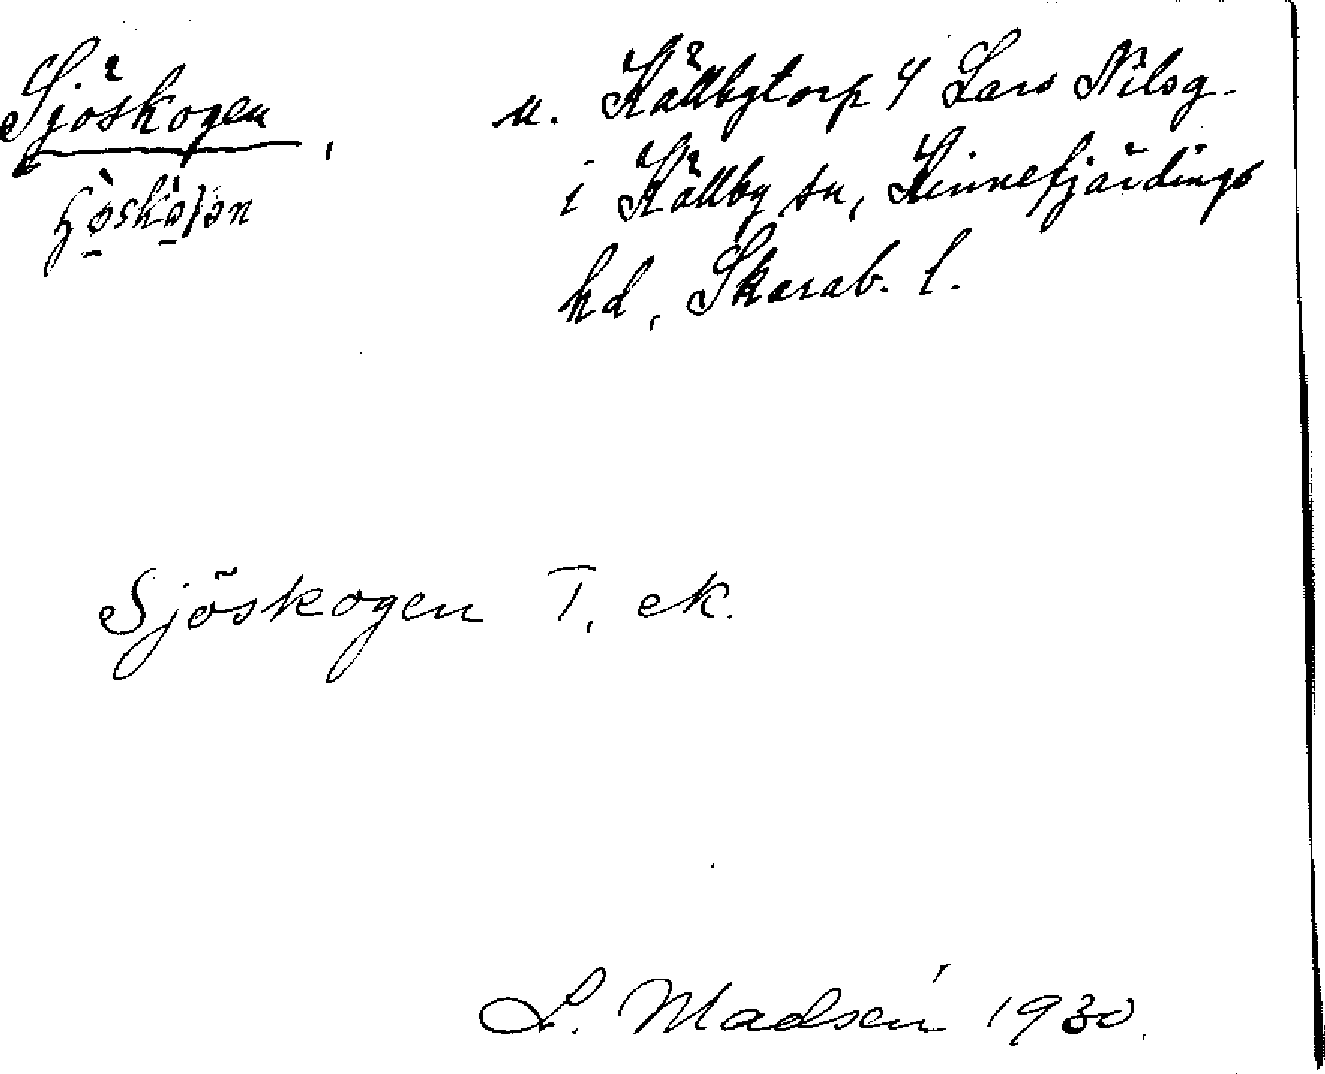 Sjöskogen, u. Källbytorp 4 Lars Nilsg.
i Källby sn, Kinnefjärdings
hd, Skarab. l.
Sjöskogen T. ek.
L. Madsén 1930.